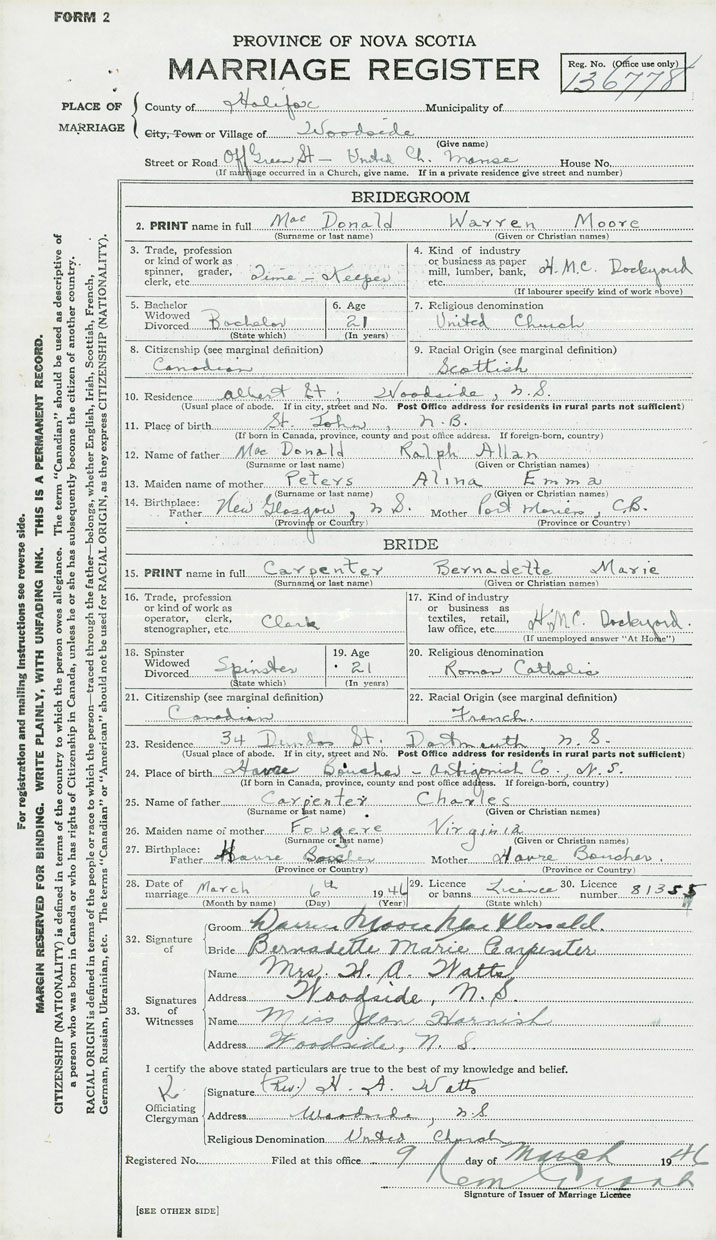 FORM 2
PROVINCE OF NOVA SCOTIA
MARRIAGE REGISTER
Reg. No. (Office use only)
136778
PLACE OF MARRIAGE
County of Halifax Municipality of
City, Town or Village of Woodside
(Give name)
Street or Road Off Green St - United Ch. Manse House No.
(If marriage occurred in a Church, give name. If in a private residence give street and number)
BRIDEGROOM
2. PRINT name in full Mac Donald Warren Moore
(Surname or last name) (Given or Christian names)
3. Trade, profession or kind of work as spinner, grader, clerk, etc. Time - Keeper
4. Kind of industry or business as paper mill, lumber, bank, etc. H.M.C. Dockyard
(If labourer specify kind of work above)
5. Bachelor Widowed Divorced Bachelor
(State which)
6. Age 21
(In years)
7. Religious denomination
United Church
8. Citizenship (see marginal definition)
Canadian
9. Racial Origin (see marginal definition)
Scottish
10. Residence Albert St; Woodside, N.S.
(Usual place of abode. If in city, street and No. Post Office address for residents in rural parts not sufficient)
11. Place of birth St. John, N.B.
(If born in Canada, province, county and post office address. If foreign-born, country)
12. Name of father Mac Donald Ralph Allan
(Surname or last name) (Given or Christian names)
13. Maiden name of mother Peters Alina Emma
(Surname or last name) (Given or Christian names)
14. Birthplace: Father New Glasgow, N.S. Mother Port Moriens, C.B.
(Province or Country) (Province or Country)
BRIDE
15. PRINT name in full Carpenter Bernadette Marie
(Surname or last name) (Given or Christian names)
16. Trade, profession or kind of work as operator, clerk, stenographer, etc. Clerk
17. Kind of industry or business as textiles, retail, law office, etc. H.M.C. Dockyard.
(If unemployed answer "At Home")
18. Spinster Widowed Divorced Spinster
(State which)
19. Age 21
(In years)
20. Religious denomination
Roman Catholic
21. Citizenship (see marginal definition)
Canadian
22. Racial Origin (see marginal definition)
French.
23. Residence 34 Dundas St. Dartmouth, N.S.
(Usual place of abode. If in city, street and No. Post Office address for residents in rural parts not sufficient)
24. Place of birth Havre Boucher - Antigonish Co., N.S.
(If born in Canada, province, county and post office address. If foreign-born, country)
25. Name of father Carpenter Charles
(Surname or last name) (Given or Christian names)
26. Maiden name of mother Fougere Virginia
(Surname or last name) (Given or Christian names)
27. Birthplace: Father Havre Boucher Mother Havre Boucher.
(Province or Country) (Province or Country)
28. Date of marriage March 6th 1946
(Month by name) (Day) (Year)
29. Licence or banns Licence
(State which)
30. Licence number 81355
32. Signature of
Groom Warren Moore MacDonald.
Bride Bernadette Marie Carpenter
33. Signatures of Witnesses
Name Mrs. H. A. Watts
Address Woodside, N.S.
Name Miss Jean Harnish
Address Woodside, N.S.
I certify the above stated particulars are true to the best of my knowledge and belief.
Officiating Clergyman
Signature (Rev.) H. A. Watts
Address Woodside, N.S
Religious Denomination United Church
Registered No. Filed at this office 9 day of March 1946
Signature of Issuer of Marriage Licence
[SEE OTHER SIDE]
For registration and mailing instructions see reverse side.
MARGIN RESERVED FOR BINDING. WRITE PLAINLY, WITH UNFADING INK. THIS IS A PERMANENT RECORD.
CITIZENSHIP (NATIONALITY) is defined in terms of the country to which the person owes allegiance. The term "Canadian" should be used as descriptive of
a person who was born in Canada or who has rights of Citizenship in Canada, unless he or she has subsequently become the citizen of another country.
RACIAL ORIGIN is defined in terms of the people or race to which the person—traced through the father—belongs, whether English, Irish, Scottish, French,
German, Russian, Ukrainian, etc. The terms "Canadian" or "American" should not be used for RACIAL ORIGIN, as they express CITIZENSHIP (NATIONALITY).